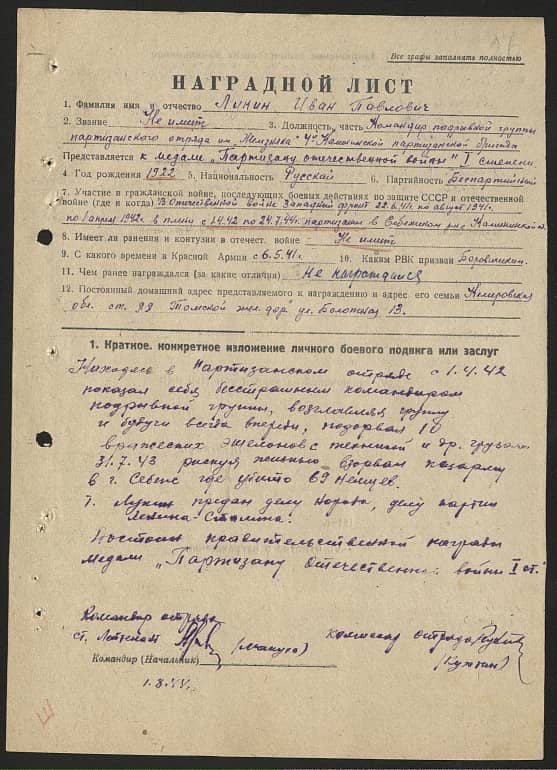 Все графы заполнять полностью
НАГРАДНОЙ ЛИСТ
1. Фамилия имя и отчество Лунин Иван Павлович
2. Звание Не имеет 3. Должность, часть Командир подрывной группы
партизанского отряда им. 4-Калининской партизанской бригады
Представляется к медали „Партизану отечественной войны" I степени
4 Год рождения 1922 5. Национальность Русский 6. Партийность Беспартийный
7. Участие в гражданской войне, последующих боевых действиях по защите СССР и отечественной
войне (где и когда) В Отечественной войне Западный фронт 22.6.41г по август 1941г.
по 1 апрель 1942г. в плену с 1.4.42 по 24.7.44г. партизаном в Себежском р-не Калининской о.
8. Имеет ли ранения и контузии в отечест. войне Не имеет
9. С какого времени в Красной Армии с 6.5.41г. 10. Каким РВК призван
11. Чем ранее награждался (за какие отличия) Не награждался
12. Постоянный домашний адрес представляемого к награждению и адрес его семьи Кемеровская
обл. ст. Томской жел. дор. ул. Болотная 13.
1. Краткое, конкретное изложение личного боевого подвига или заслуг
Находясь в Партизанском отряде с 1.4.42
показал себя бесстрашным командиром
подрывной группы, возглавляя группу
и будучи всегда впереди, подорвал 10
вражеских эшелонов с техникой и др. грузом
31.7.43 рискуя жизнью взорвал казарму
в г. Себеж где убито 69 немцев.
т. Лунин предан делу народа, делу партии
Ленина-Сталина.
Достоин правительственной награды
медали „Партизану Отечественной войны I ст."
Командир отряда
ст. Лейтенант комиссар отряда
Командир (Начальник)
1.8.44.